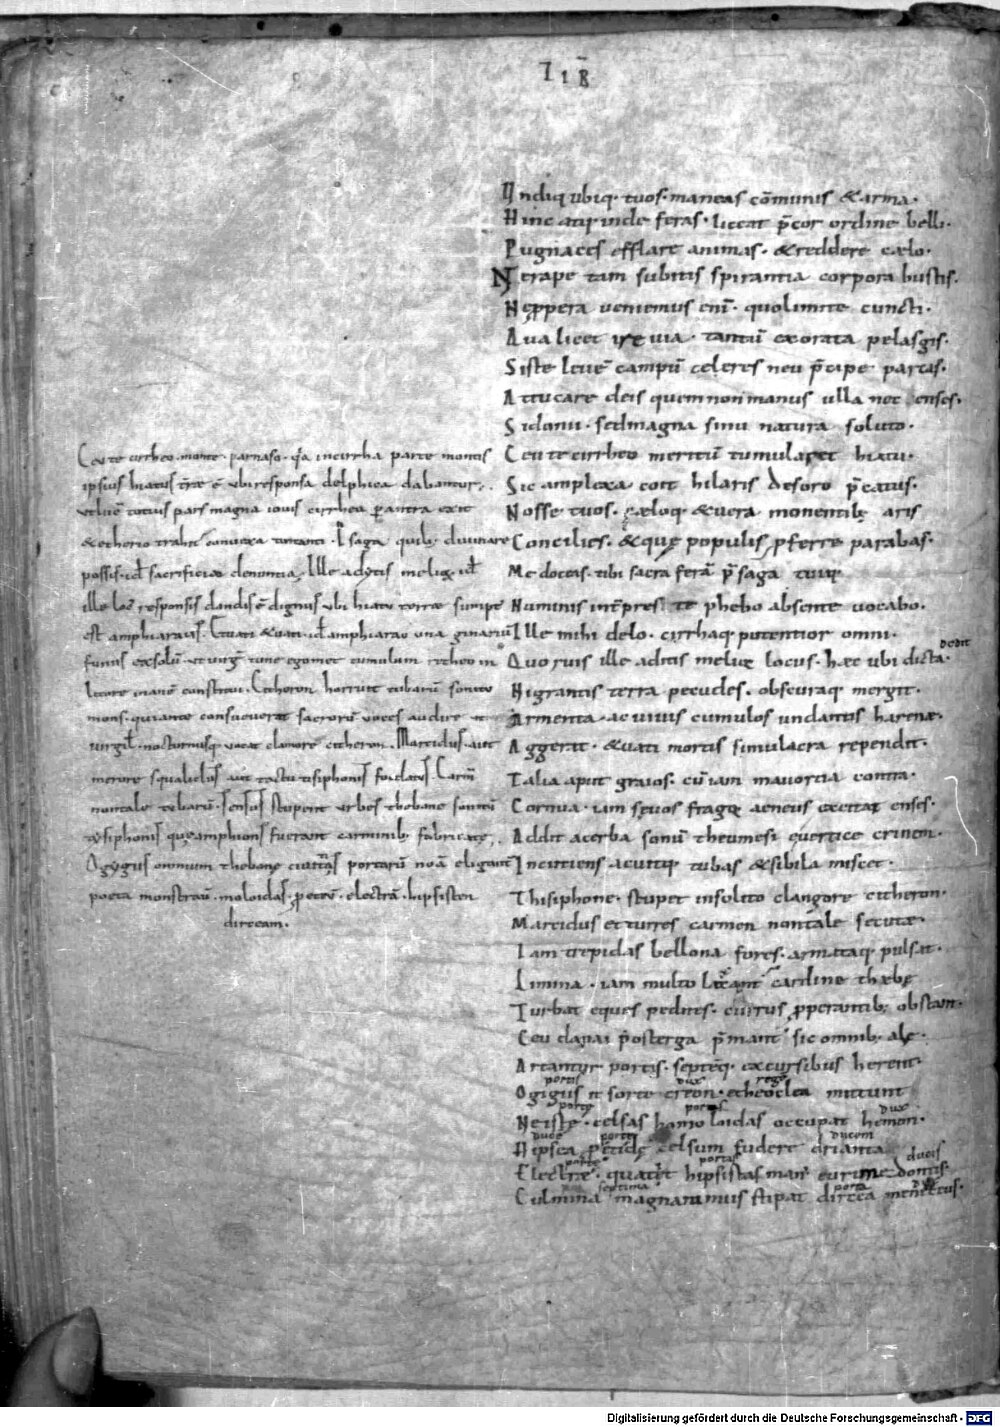 Undiq ubiq· tuos· maneas cōmunis & arma·
Hinc atq· inde feras· liceat p̄cor ordine belli·
Pugnaces efflare animas· & reddere cælo·
Ne rape tam subitis spirantia corpora bustis·
Ne ppera ueniemus eni· quo limite cuncti·
Qua licet ire uia· tantū exorata pelasgis·
Siste leuē campū celeres neu p̄cipe parcas·
At tu care deis quem non manus ulla nec enses·
Sidonii· sed magna sinu natura soluto·
Ceu te cirrheo meritū tumularet hiatu·
Sic amplexa coit hilaris desoro p̄catus·
Nosse tuos· cæloq· & uera monentib; aris
Concilies· & quę populis pferre parabas·
Me doceas· tibi sacra ferā p̄saga tuiq;
Numinis int̄pres· te phebo absente uocabo·
Ille mihi delo· cirrhaq; potentior omni·
Quo ruis ille aditis melior locus· hæc ubi dicta·
dedit
Nigrantis terra pecudes· obscuraq; mergit·
Armenta· ac uiuis cumulos undantis harenæ·
Aggerat· & uati mortis simulacra rependit·
Talia aput graios· cū iam mauortia contra·
Cornua· iam sęuos fragor aeneus excitat enses·
Addit acerba sonū theumesi euertice crinem·
Incutiens acuitq; tubas & sibila miscet·
Thisiphone· stupet insolito clangore citheron·
Marcidus et turres carmen non tale secutæ·
Iam trepidas bellona fores· armataq; pulsat·
Limina· iam multo laxant cardine thæbę
Turbat eques pedites· currus pperantib; obstant·
Ceu danai p̄ost terga p̄mant sic omnib; alę·
Artantur portis· septēq; excursibus herent·
portis dux regē
Ogigiis it sorte creon· etheoclea mittunt
portę portas dux
Neistę· celsas homoloidas occupat hemon·
duce portę ducem
Hipsea p̄etidę celsum fudere drianta
portas ducis
Electræ· quatit hipsistas man' eurimedontis·
septima porta dux
Culmina magnanimus stipat dircea menęceus·
Ceu te cirrheo· monte· parnaso· q̄a in cirrha parte montis
ipsius hiatus tr̄æ ē vbi responsa delphica dabantur·
vt luē totius pars magna iouis cirrhea p antra exit
& etherio trahit conuexa tonanti· P̄saga quib; diuinare
possis· id sacrificia denontia· Ille adytis melior id
ille loc' responsis dandis ē dignus vbi hiatu terræ sumpt'
est amphiaraus· Et uati & uati· id amphiarao
litore inanē constitui· Citheron horruit tubarū sonito
mons· qui ante consueuerat sacrorū uoces audire ut
uirgil· nocturnusq; uocat clamore citheron· Marcidus· aut
merore squalidus aut tactu tisiphonis foedatus· Carm̄
non tale tubarū· sensus stupent urbes thebane sonitū
tysiphonis quę amphionis fuerant carminib; fabricatę·
Ogygiis omnium thebanę ciuitatis portarū noā eligant
poeta monstrauit· moloidas· p̄etidē· electrā· hipsisten
dirceam·
Digitalisierung gefördert durch die Deutsche Forschungsgemeinschaft - DFG